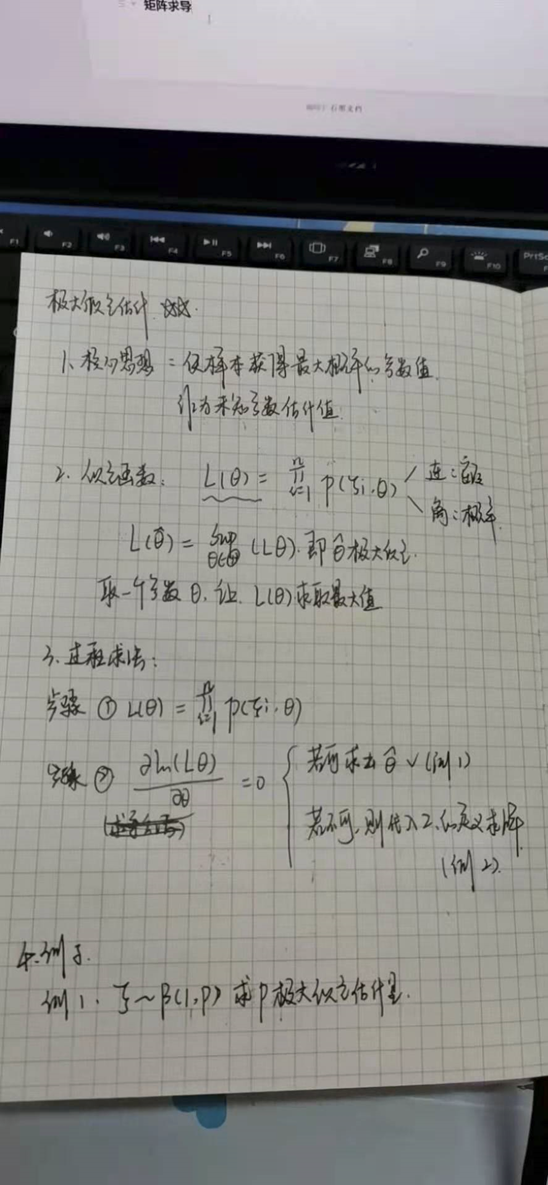 矩阵求导
F1 F2 F3 F4 F5 F6 F7 F8 F9 F10 PrtSc
极大似然估计
1、核心思想:使样本获得最大概率的参数值
作为未知参数估计值
2、似然函数: L(θ) = ∏ᵢ₌₁ⁿ p(ξi, θ) 连:密度
离:概率
L(θ̂) = sup θ∈Θ (Lθ). 即θ̂极大似然.
取一个参数θ,让L(θ)求取最大值
3、过程求法:
步骤 ① L(θ) = ∏ᵢ₌₁ⁿ p(ξi, θ)
步骤 ② ∂ln(Lθ)/∂θ = 0 { 若可求出 θ̂ √ (例1)
若不可,则代入2、的定义求解
(例2)
4、例子.
例1、ξ~β(1,P) 求P极大似然估计量.